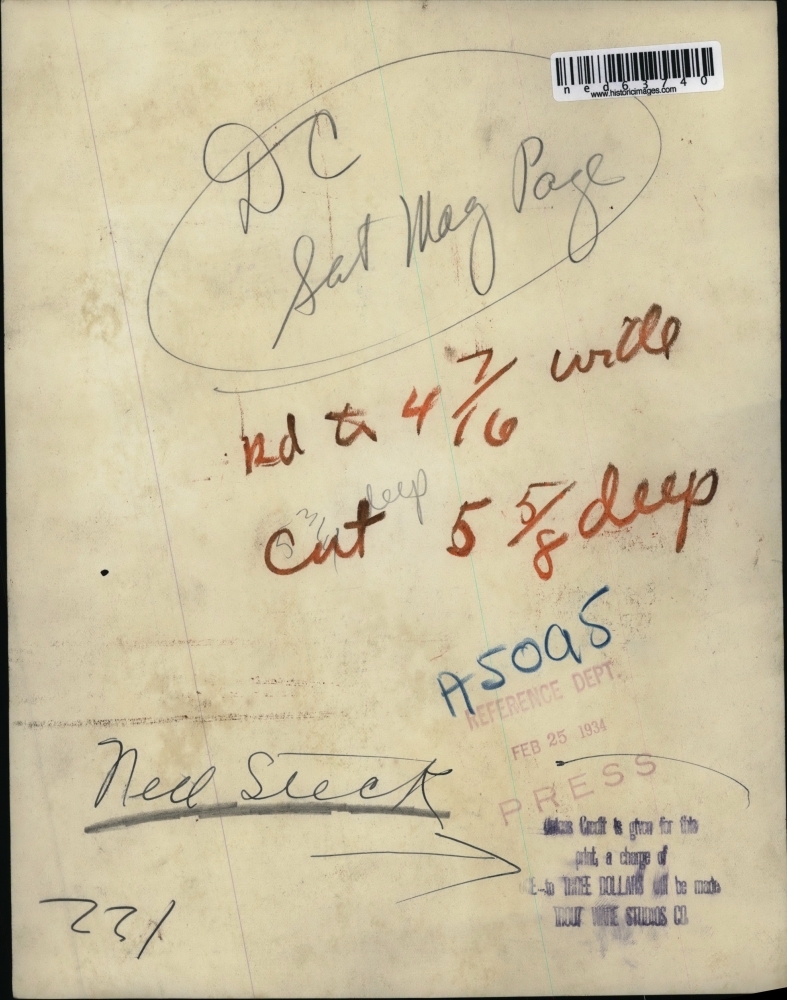 ned63740
www.historicimages.com
DC
Sat Mag Page
Rd to 4 7/16 wide
deep
Cut 5 5/8 deep
A5095
REFERENCE DEPT.
FEB 25 1934
PRESS
Ned Steck
Unless Credit is given for this
print, a charge of
THREE DOLLARS will be made
STUDIOS CO.
221